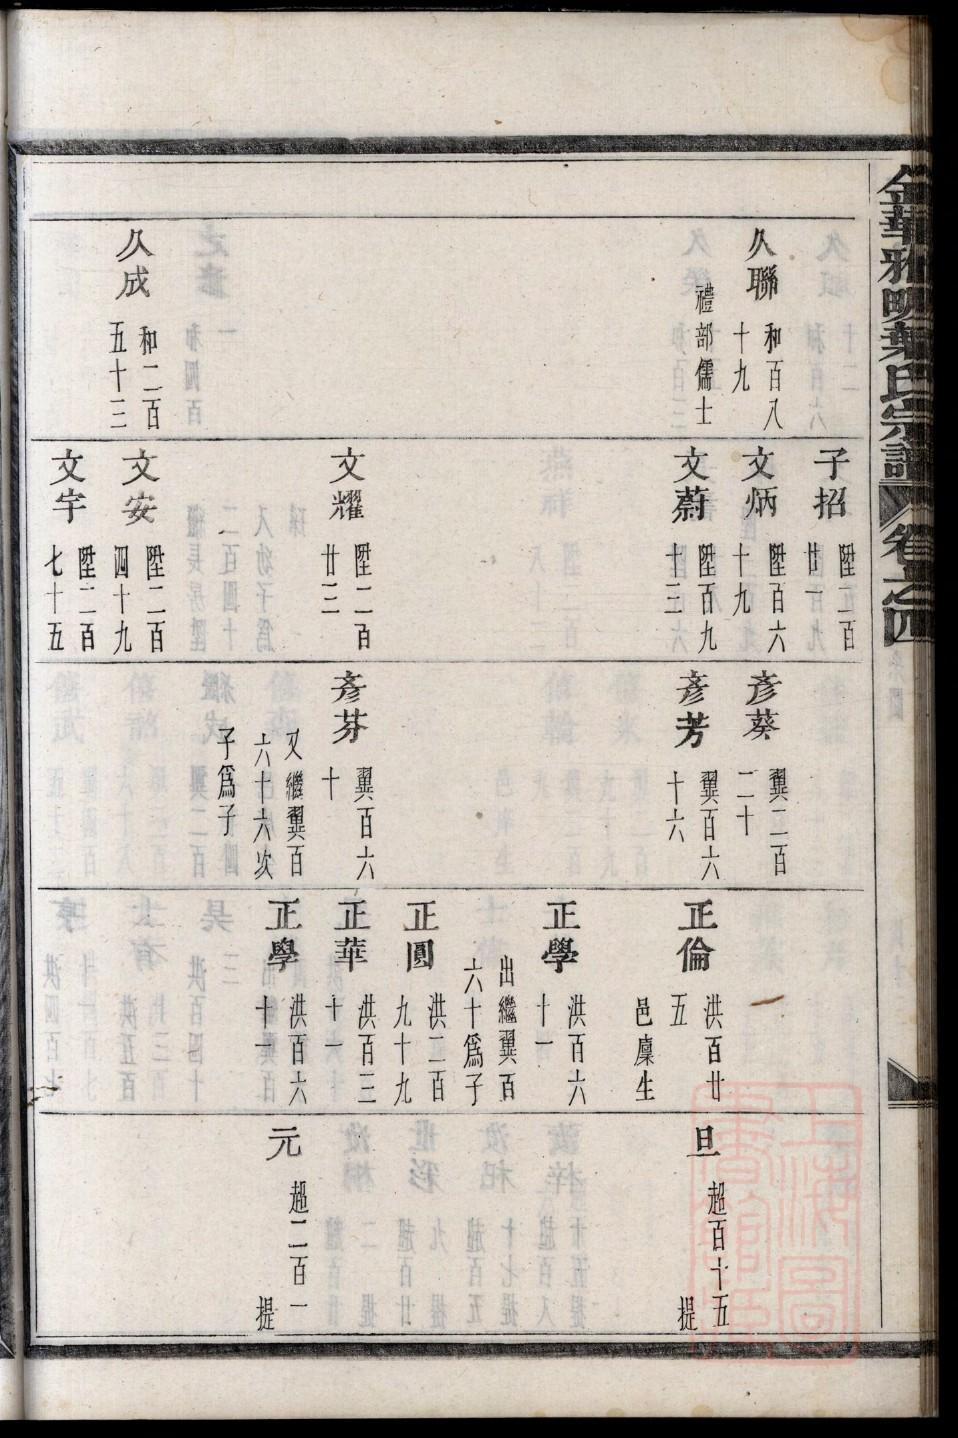 金華雅畈葉氏宗譜 卷之四
久聯 和百八十九 禮部儒士
久成 和二百五十三
子招 陞二百廿一
文炳 陞百六十九
文蔚 陞百九十三
文耀 陞二百廿三
文安 陞二百四十九
文宇 陞二百七十五
彥葵 翼二百二十
彥芳 翼百六十六
彥芬 翼百六十 又繼翼百六十六次子爲子
正倫 洪百廿五 邑廩生
正學 洪百六十一 出繼翼百六十爲子
正圓 洪二百九十九
正華 洪百三十一
正學 洪百六十一
旦 超百十五 提
元 超二百一 提